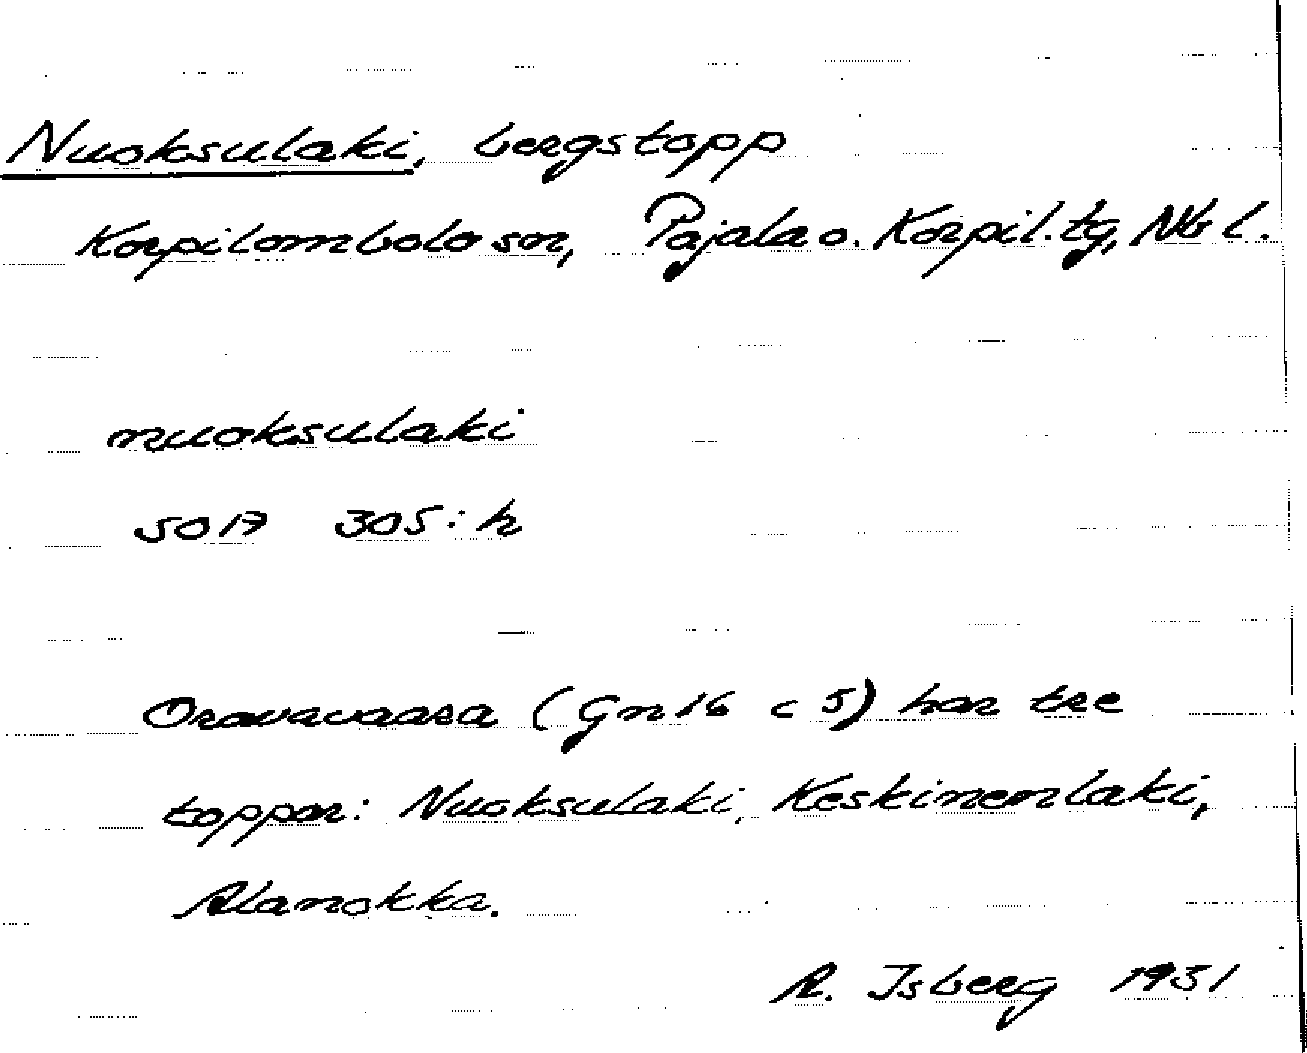 Nuoksulaki, bergstopp
Korpilombolo sn, Pajala o. Korpil. tg, Nb l.
nuoksulaki
SO 17 305: h
Oravavaara (Gn 16 c 5) har tre
toppar: Nuoksulaki, Keskinenlaki,
Alanokka.
R. Isberg 1931